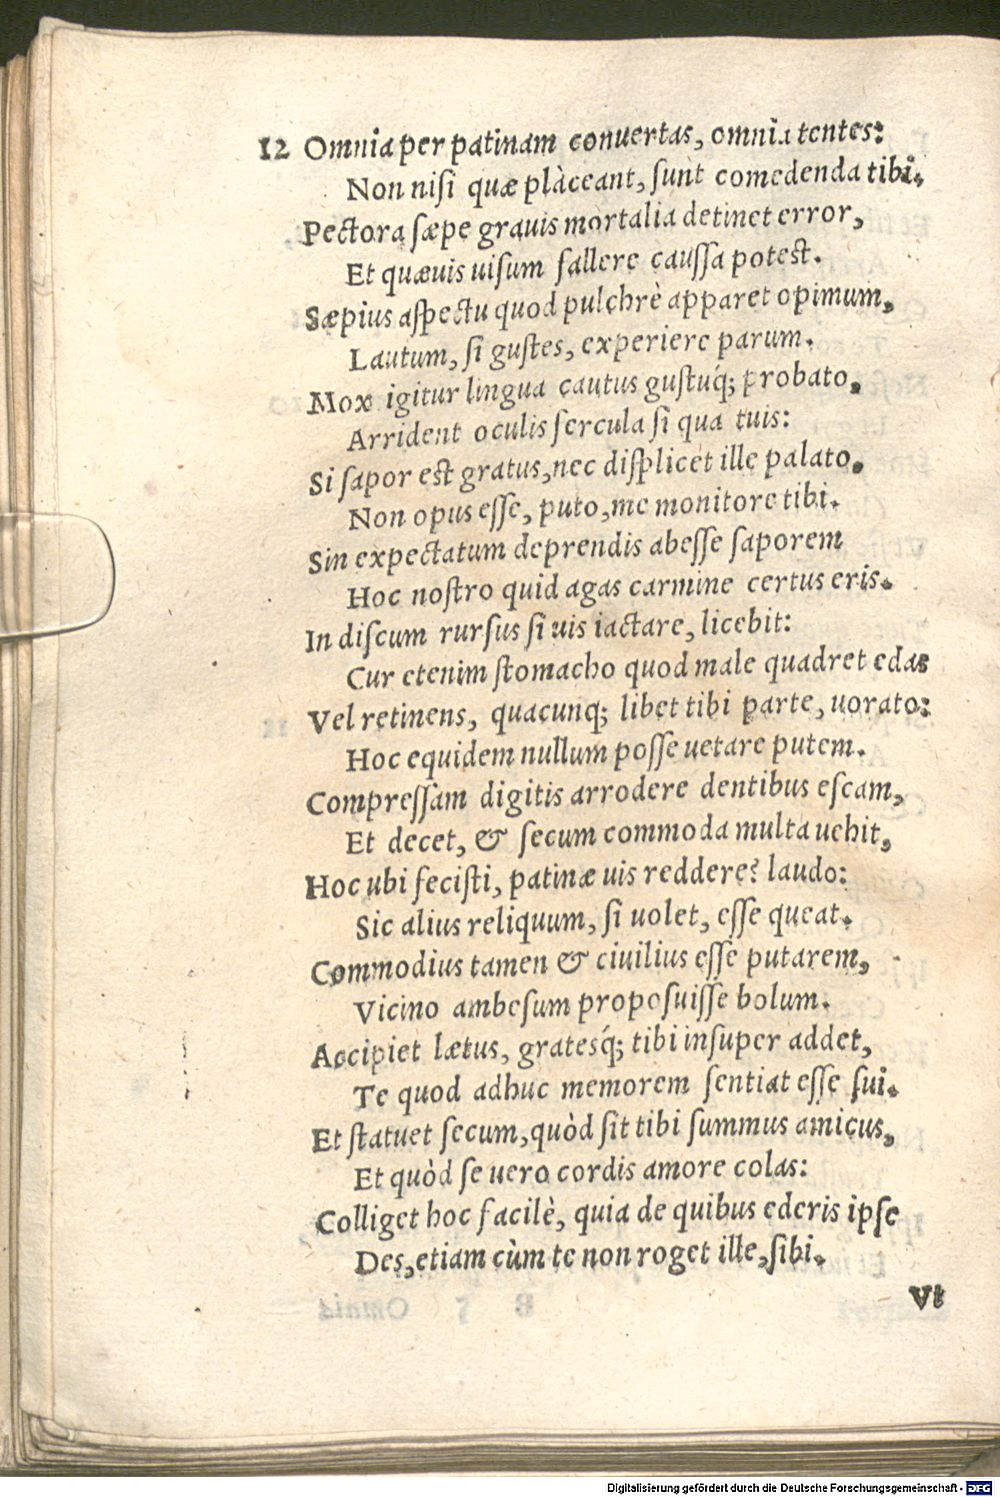 12 Omnia per patinam conuertas, omnia tentes:
Non nisi quæ plàceant, sunt comedenda tibi.
Pectora sæpe grauis mortalia detinet error,
Et quæuis uisum fallere caussa potest.
Sæpius aspectu quod pulchrè apparet opimum,
Lautum, si gustes, experiere parum.
Mox igitur lingua cautus gustuq́; probato,
Arrident oculis fercula si qua tuis:
Si sapor est gratus, nec displicet ille palato,
Non opus esse, puto, me monitore tibi.
Sin expectatum deprendis abesse saporem
Hoc nostro quid agas carmine certus eris.
In discum rursus si uis iactare, licebit:
Cur etenim stomacho quod male quadret edas
Vel retinens, quacunq; libet tibi parte, uorato:
Hoc equidem nullum posse uetare putem.
Compressam digitis arrodere dentibus escam,
Et decet, & secum commoda multa uehit,
Hoc ubi fecisti, patinæ uis reddere? laudo:
Sic alius reliquum, si uolet, esse queat.
Commodius tamen & ciuilius esse putarem,
Vicino ambesum proposuisse bolum.
Accipiet lætus, gratesq́; tibi insuper addet,
Te quod adhuc memorem sentiat esse sui.
Et statuet secum, quòd sit tibi summus amicus,
Et quòd se uero cordis amore colas:
Colliget hoc facilè, quia de quibus ederis ipse
Des, etiam cùm te non roget ille, sibi.
Vt
Digitalisierung gefördert durch die Deutsche Forschungsgemeinschaft - DFG